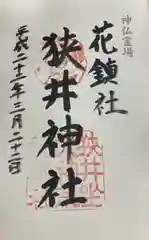 神仏霊場
花鎮社
狭井神社
平成二十二年三月二十二日